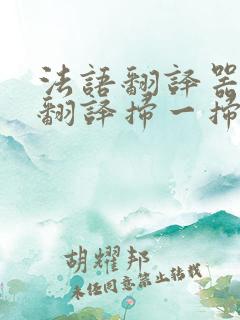 法語翻譯器
翻譯掃一掃
胡耀邦
未經同意禁止轉載